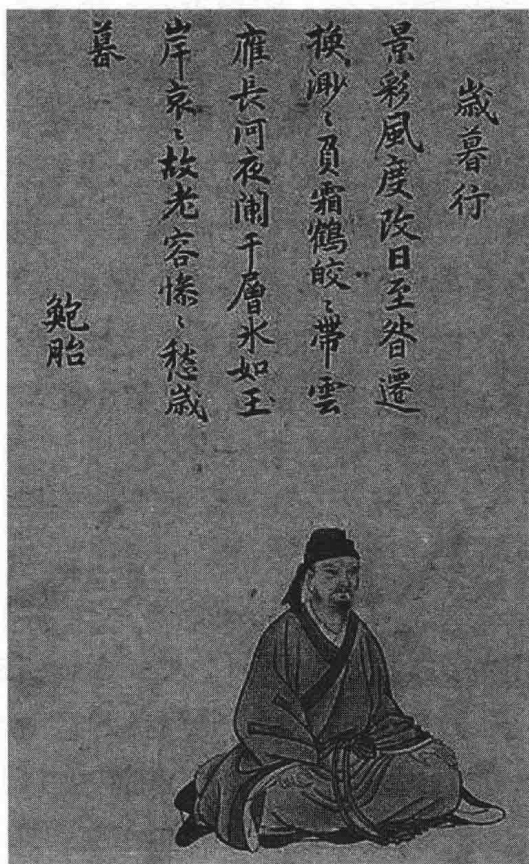 歳暮行
景彩風度改日至昝遷
換渺〻負霜鶴皎〻帶雲
雁長河夜闌干層氷如玉
岸哀〻故老容惨〻愁歳
暮
鮑胎